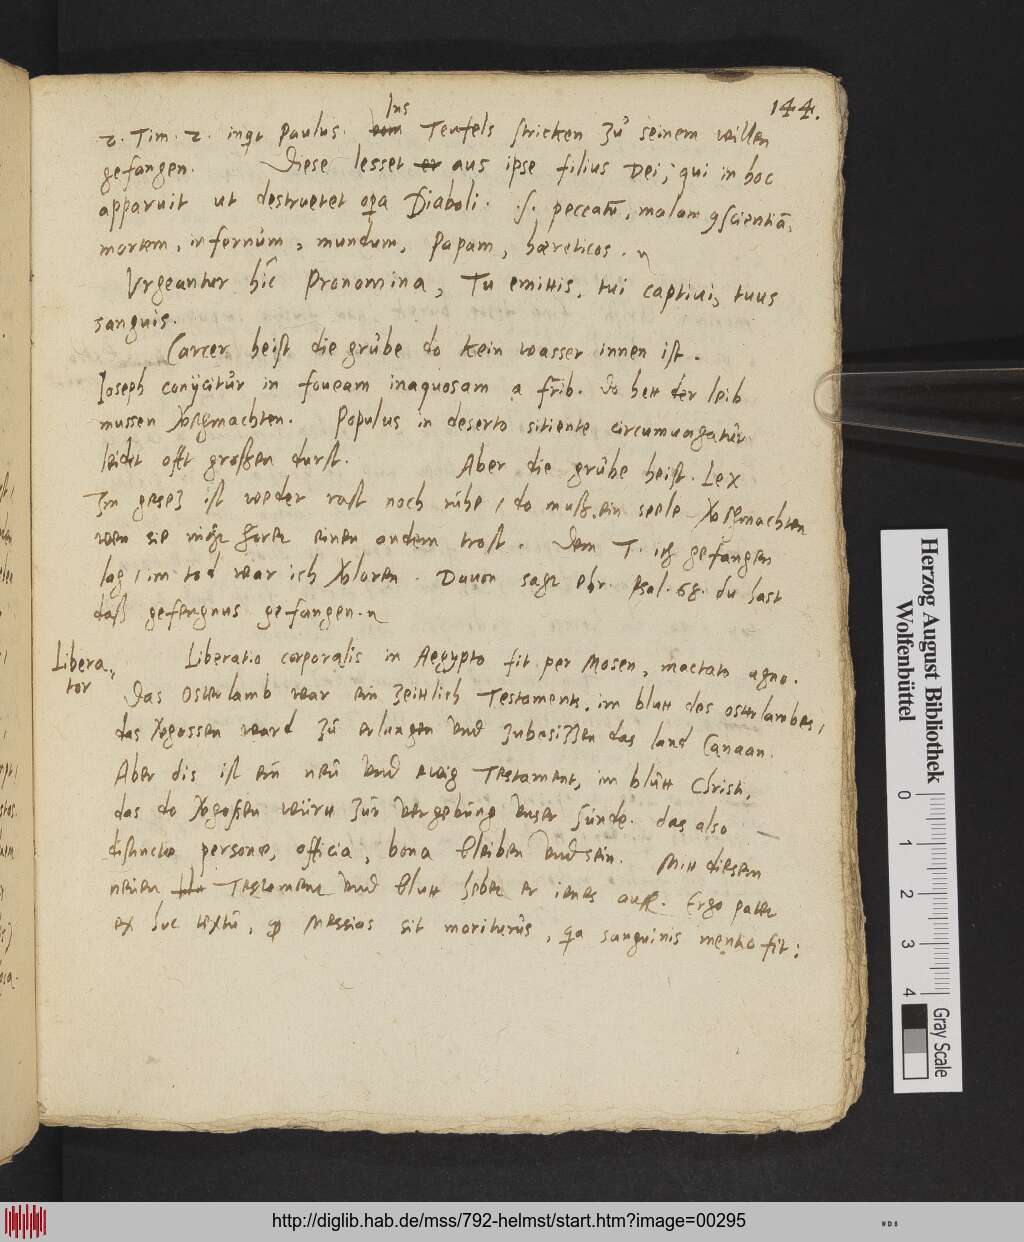 144.
Ins
2. Tim. 2. inqt Paulus. vom Teufels stricken zů seinem willen
gefangen. Diese lesset er aus ipse filius Dei, qui in hoc
apparuit ut destrueret opa Diaboli. .s. peccatū, malam 9scientiā,
mortem, infernům, mundum, Papam, hæreticos.
Vrgeantur hic Pronomina, Tu emittis, tui captiui, tuus
sanguis.
Carcer heist die grůbe do kein wasser innen ist.
Joseph conijcitůr in foueam inaquosam a frīb. Do hett der leib
mussen machten. Populus in deserto sitiente circumuagatůr
leidet offt grossen durst. Aber die grůbe heist Lex
Im gesez ist weder rast noch růhe, do muß ein seele machten
wen sie nicht horet einen andern trost. Dem T. ich gefangen
lag, im tod war ich Xloren. Dauon sagt ehr. Psal. 68. du hast
daß gefengnus gefangen.
Libera
tor
Liberatio corporalis in Aegypto fit per Mosen, mactato agno.
Das Osterlamb war ein zeittlich Testament, im blutt des osterlambes,
das Xgossen ward zů erlangen vnd zubesizzen das land Canaan.
Aber dis ist ein neů vnd ewig Testament, im blůtt Christi,
das do Xgossen württ zůr vergebůng vnser sůnde. das also
distinctæ personæ, officia, bona bleiben vnd sein. Mitt diesem
neuen Testament vnd blutt hebet er ienes auff. Ergo patet
ex hoc textū, Messias sit moriturůs, qa sanguinis mentio fit:
Herzog August Bibliothek
Wolfenbüttel
0 1 2 3 4
Gray Scale
http://diglib.hab.de/mss/792-helmst/start.htm?image=00295